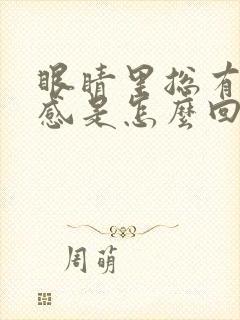 眼睛里总有
感是怎麼回
周萌